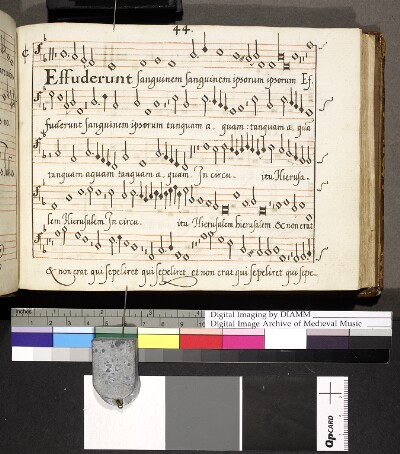 44.
Effuderunt sanguinem sanguinem ipsorum ipsorum Ef.
fuderunt sanguinem ipsorum tanquam a. quam : tanquam a. qua
tanquam aquam tanquam a. quam. In circu. itu. Hierusa.
lem Hierusalem In circu. itu. Hierusalem hierusalem. & non erat
& non erat qui sepeliret qui sepeliret et non erat qui sepeliret qui sepe.
inches
Digital Imaging by DIAMM
Digital Image Archive of Medieval Music
QPCARD